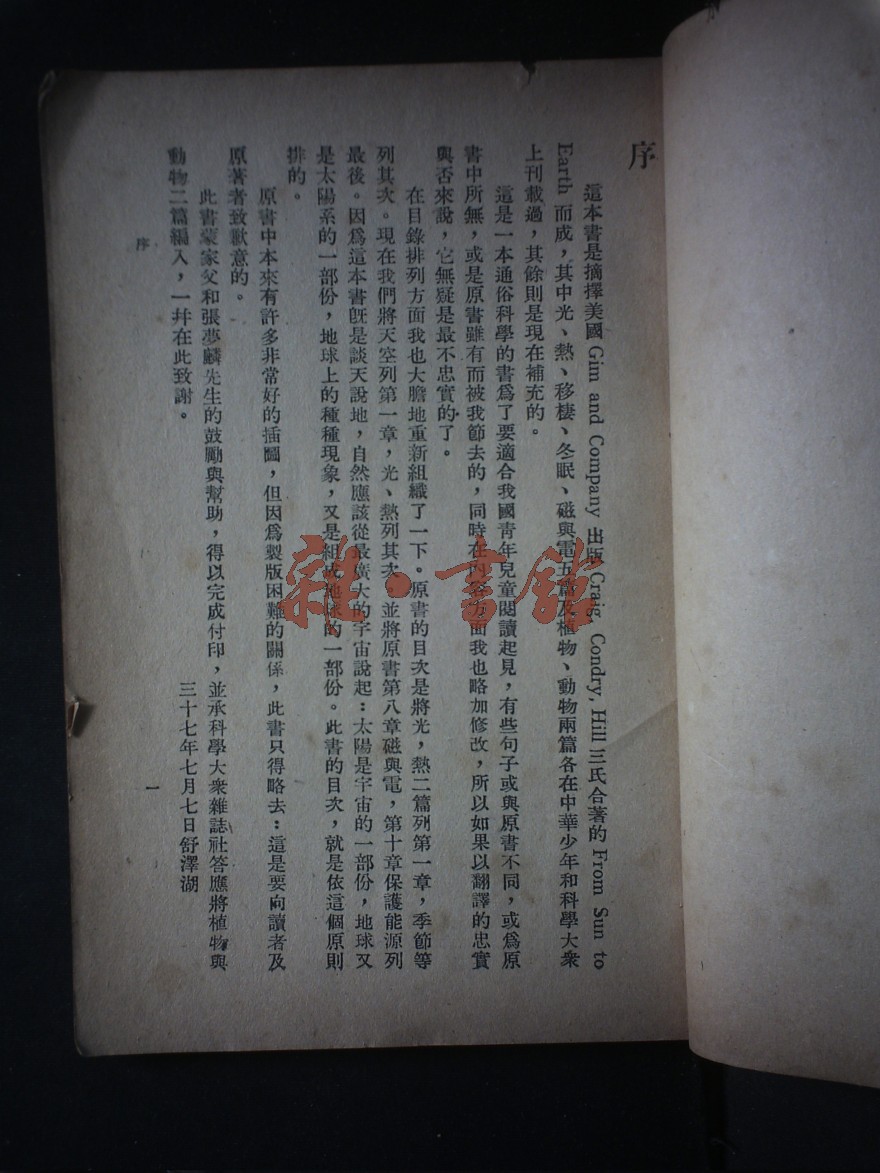 序
這本書是摘擇美國 Gim and Company 出版 Craig, Condry, Hill 三氏合著的 From Sun to
Earth 而成，其中光、熱、移棲、冬眠、磁與電五篇及植物、動物兩篇各在中華少年和科學大衆
上刊載過，其餘則是現在補充的。
這是一本通俗科學的書爲了要適合我國靑年兒童閱讀起見，有些句子或與原書不同，或爲原
書中所無，或是原書雖有而被我節去的，同時在內容方面我也略加修改，所以如果以翻譯的忠實
與否來說，它無疑是最不忠實的了。
在目錄排列方面我也大膽地重新組織了一下。原書的目次是將光，熱二篇列第一章，季節等
列其次。現在我們將天空列第一章，光、熱列其次，並將原書第八章磁與電，第十章保護能源列
最後。因爲這本書旣是談天說地，自然應該從最廣大的宇宙說起：太陽是宇宙的一部份，地球又
是太陽系的一部份，地球上的種種現象，又是組成地球的一部份。此書的目次，就是依這個原則
排的。
原書中本來有許多非常好的插圖，但因爲製版困難的關係，此書只得略去：這是要向讀者及
原著者致歉意的。
此書蒙家父和張夢麟先生的鼓勵與幫助，得以完成付印，並承科學大衆雜誌社答應將植物與
動物二篇編入，一幷在此致謝。
三十七年七月七日舒澤湖
序
一
雜·書館